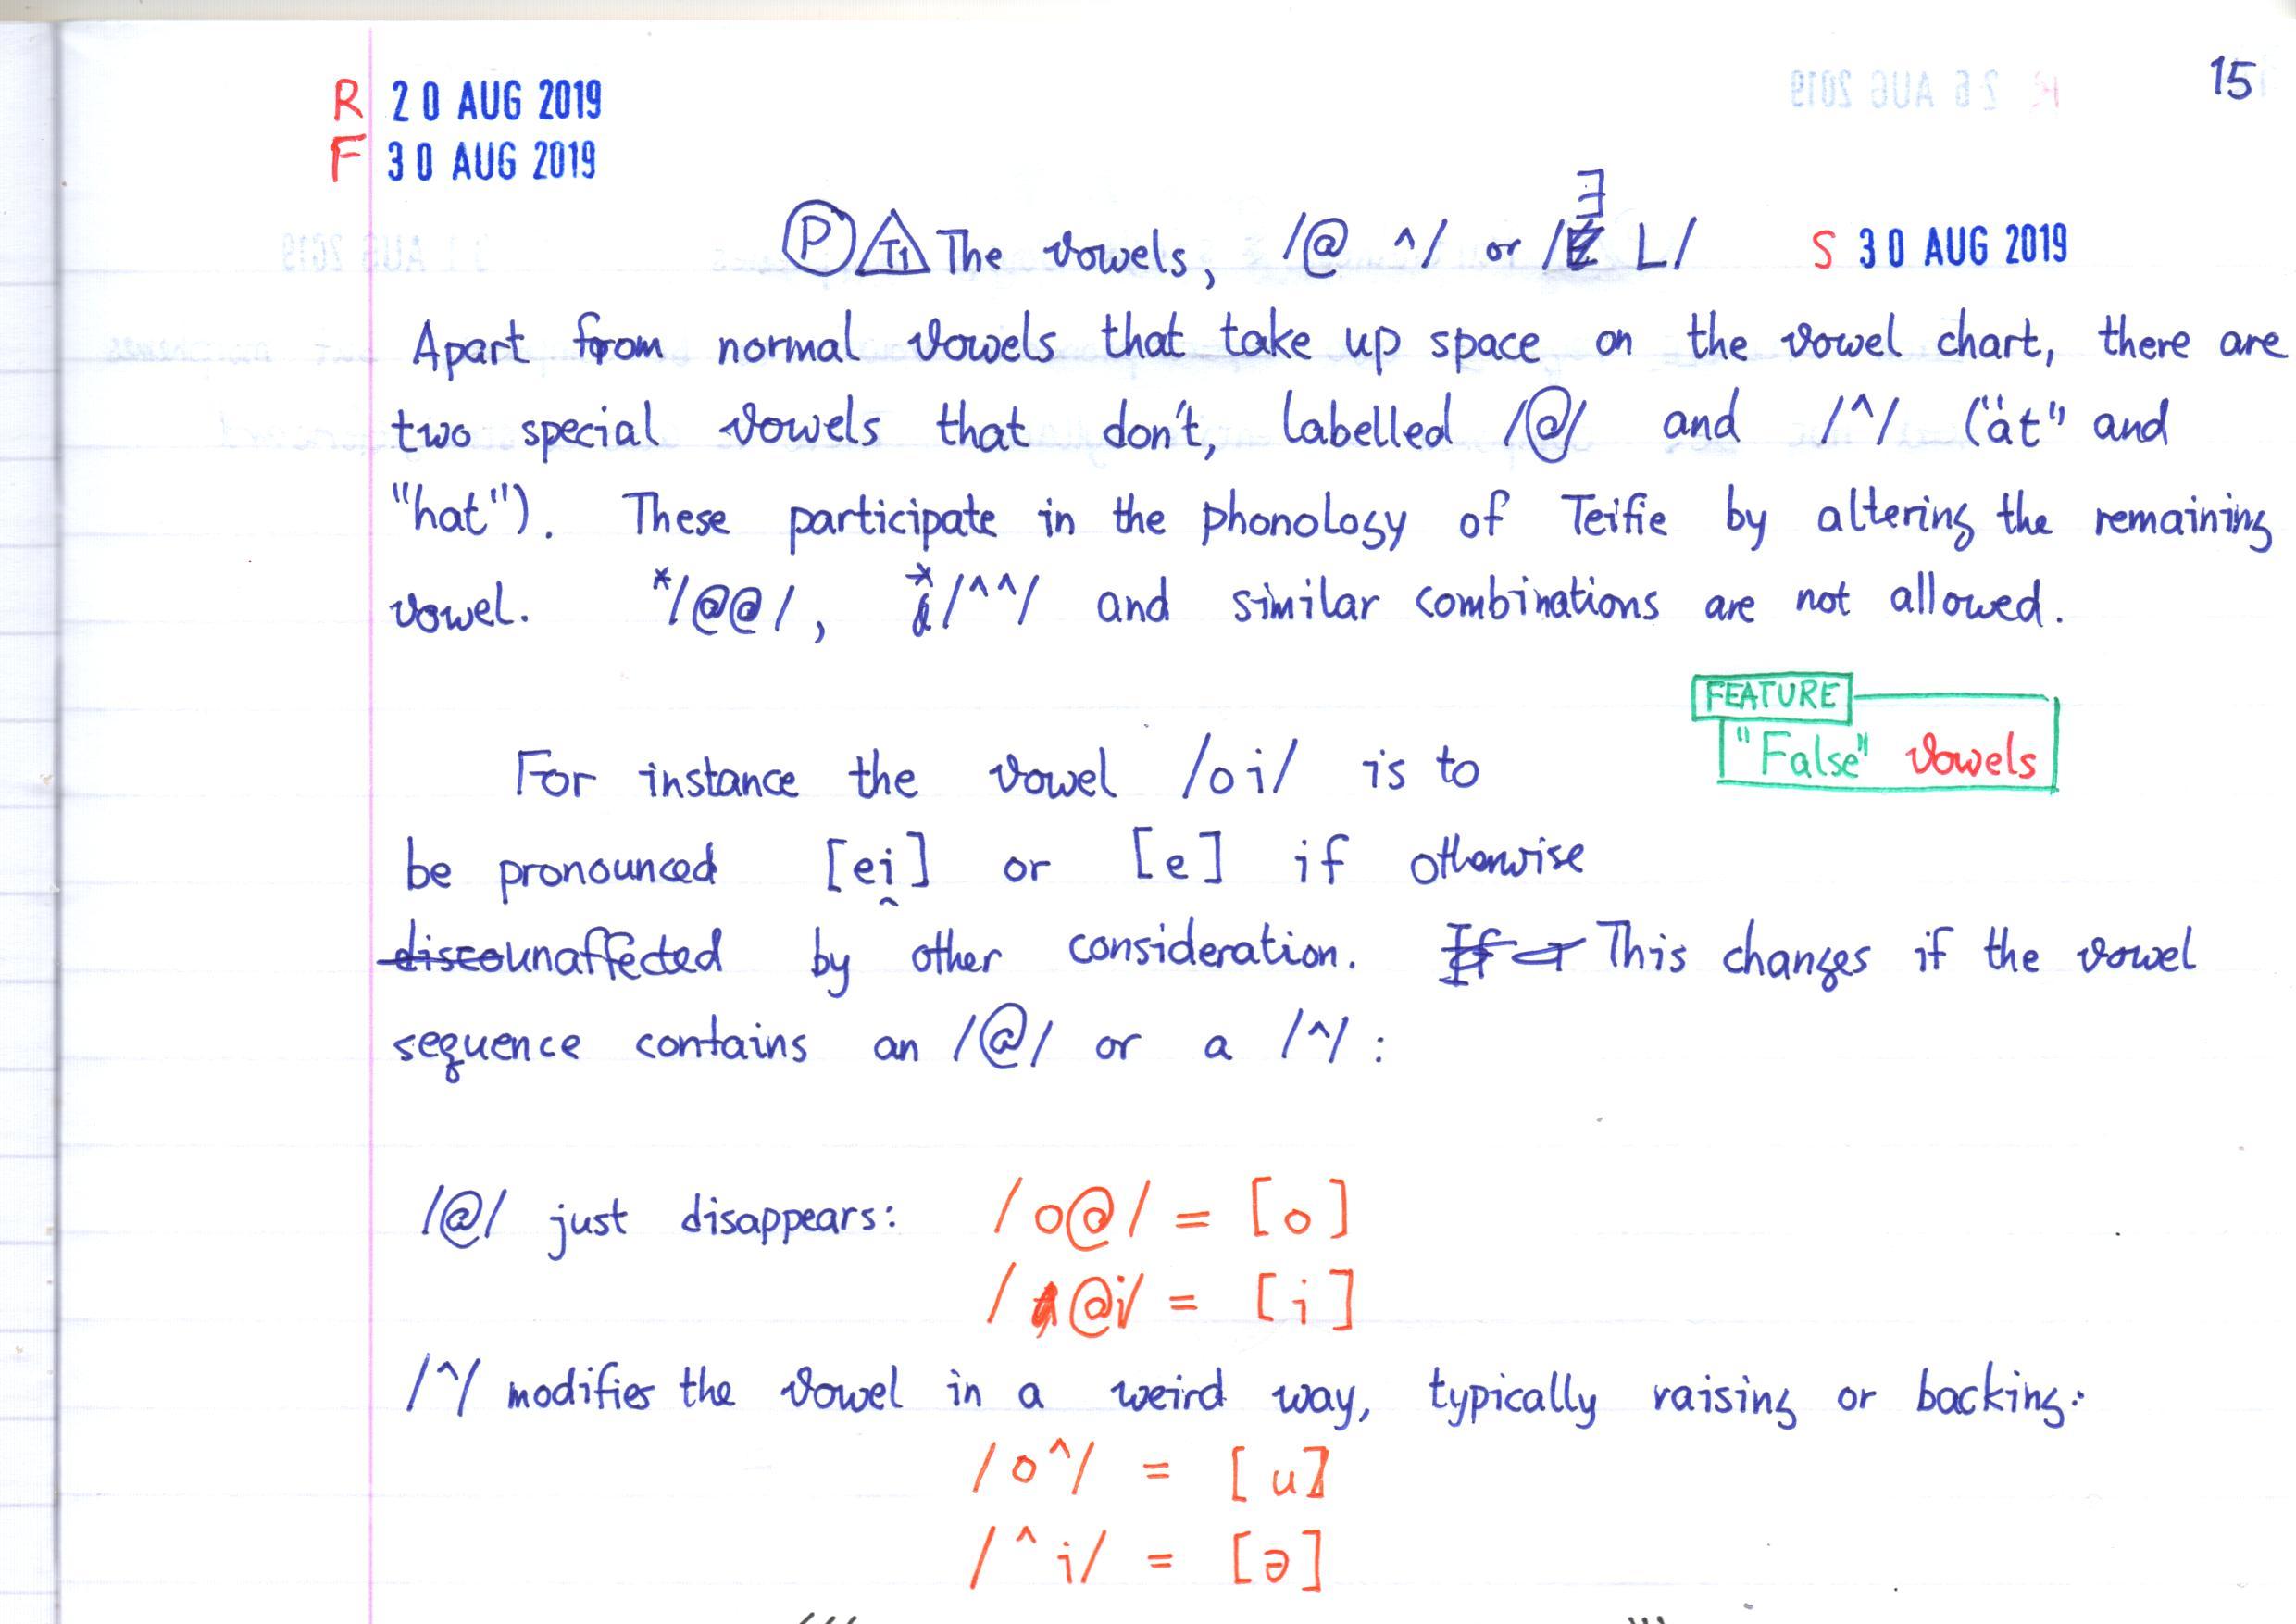 15
R 20 AUG 2019
F 30 AUG 2019
P T1 The vowels, /@ ^/ or /∃ L/ S 30 AUG 2019
Apart from normal vowels that take up space on the vowel chart, there are
two special vowels that don't, labelled /@/ and /^/ ("at" and
"hat"). These participate in the phonology of Teifie by altering the remaining
vowel. */@@/, */^^/ and similar combinations are not allowed.
FEATURE
"False" vowels
For instance the vowel /oi/ is to
be pronounced [ei̯] or [e] if otherwise
discounaffected by other consideration. If a This changes if the vowel
sequence contains an /@/ or a /^/:
/@/ just disappears: /o@/ = [o]
/@i/ = [i]
/^/ modifies the vowel in a weird way, typically raising or backing:
/o^/ = [u]
/^i/ = [ə]